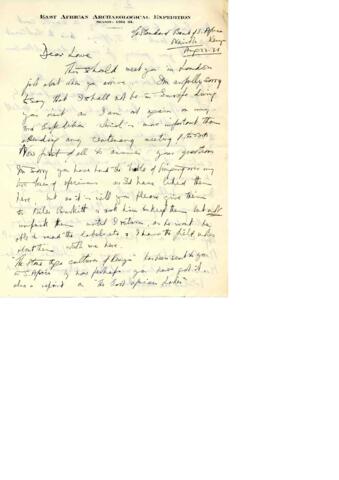 East African Archæological Expedition
Season 1931-32.
c/o Standard Bank of S. Africa
Nairobi Kenya
Dear Lowe
This should meet you in London
just about when you arrive. I'm awfully sorry
to say that I shall not be in Europe during
your visit as I am out again on my
3rd Expedition which is more important than
attending any centenary meeting of the
Now first of all to answer your questions
I'm sorry you have had the trouble of bringing over my
two trays of specimens as I'd have liked them
here, but as it is will you please give them
to Miles Burkitt & ask him to keep them but not
unpack them until I return as he won't be
able to read the labels etc & I have the field notes
about them with me here.
"The Stone Age cultures of Kenya" has been sent to you
to S. Africa & now perhaps you have got it.
also a report on "the East African Lakes"